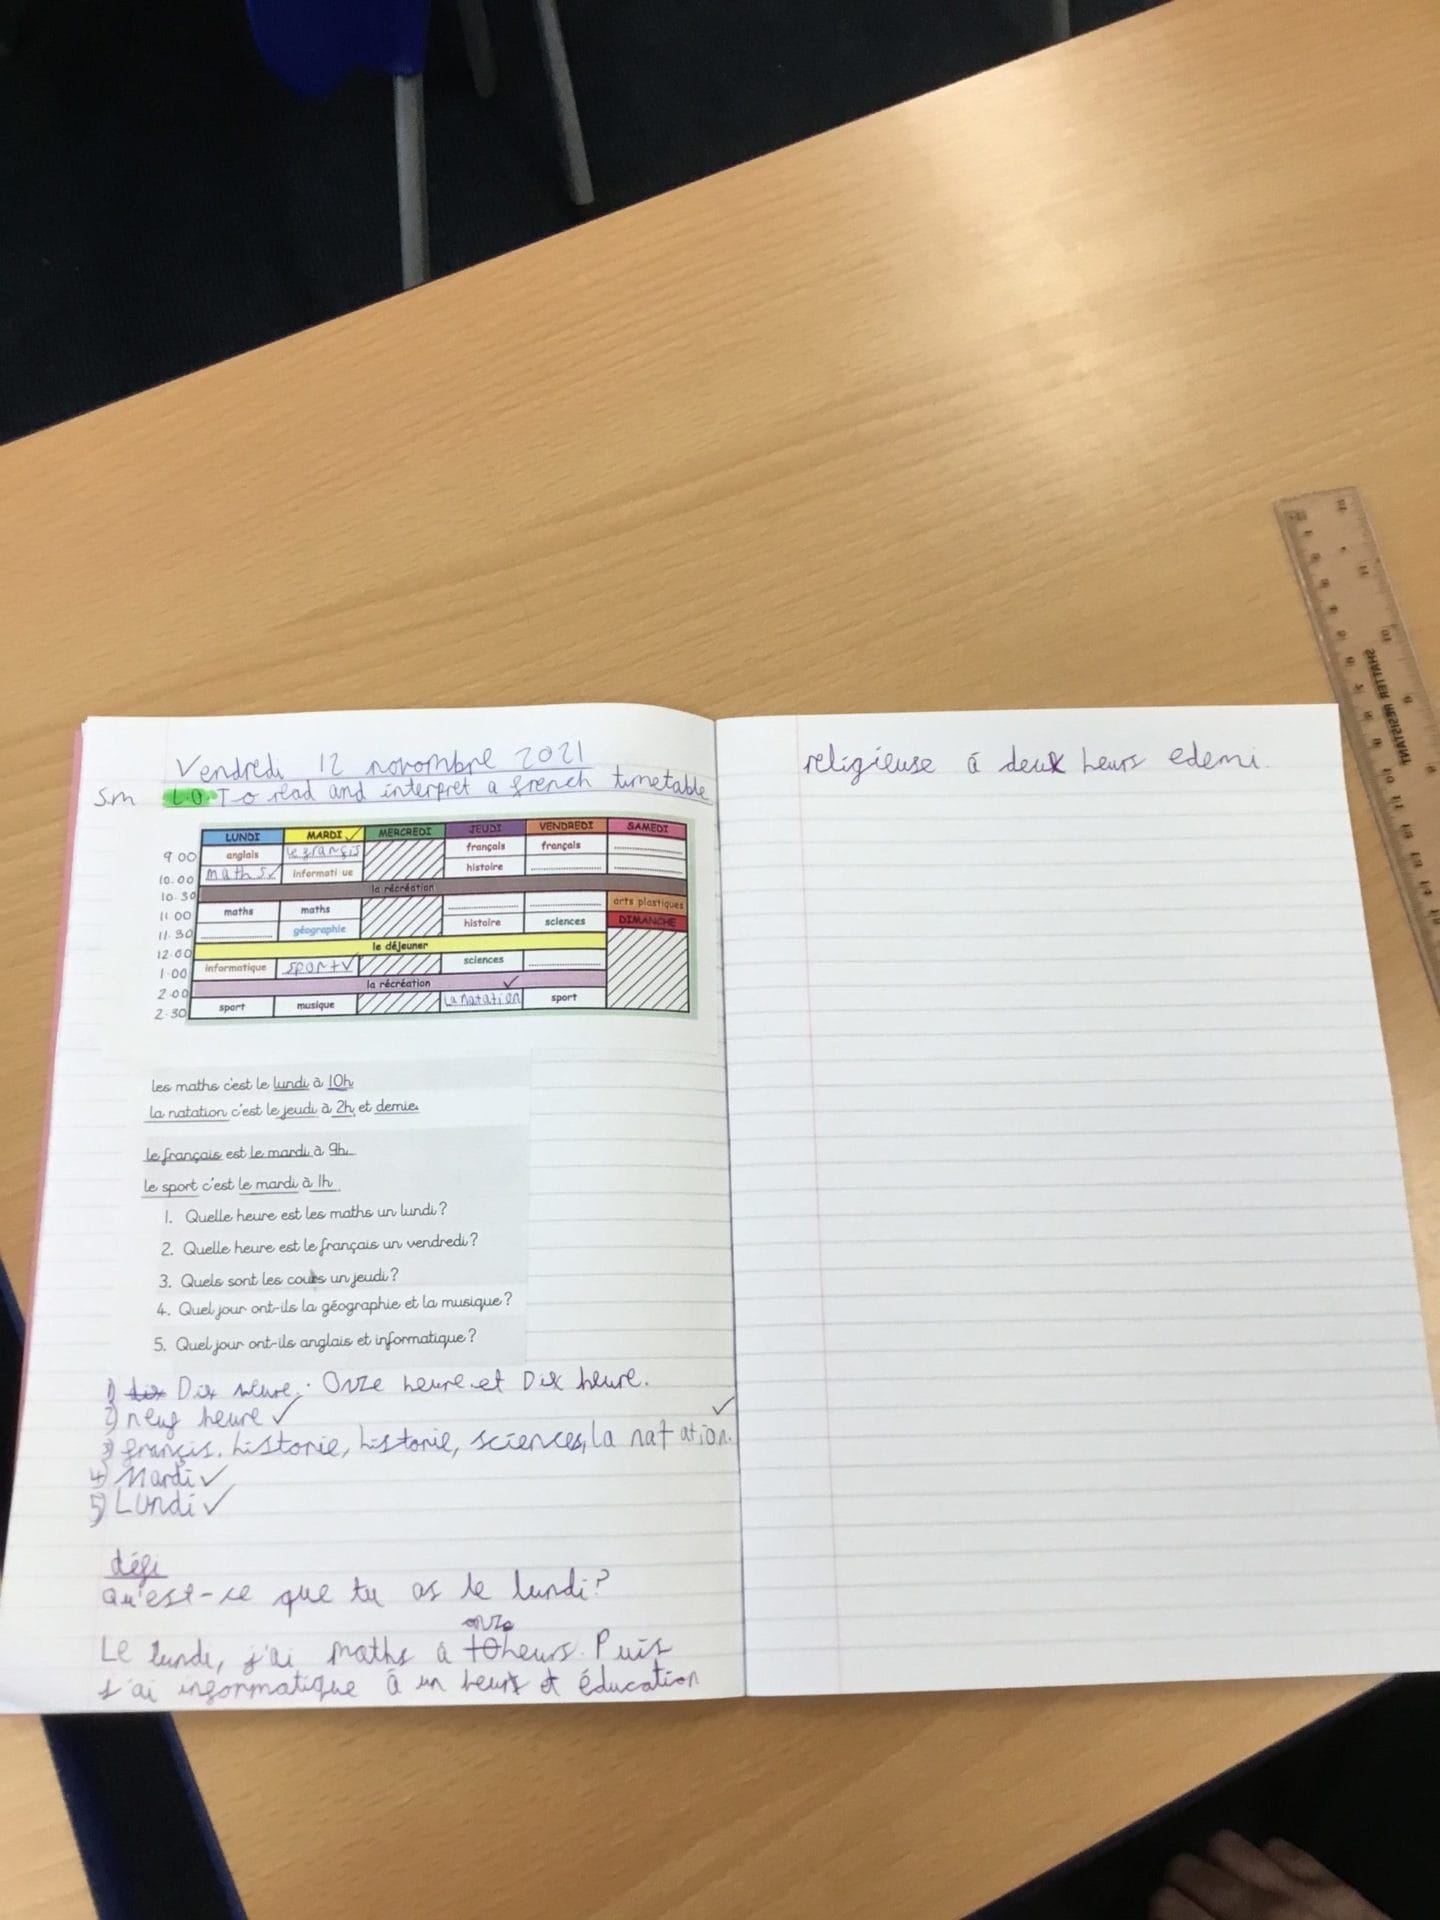 Vendredi 12 novombre 2021
Sm L.O. To read and interpret a french timetable
LUNDI MARDI MERCREDI JEUDI VENDREDI SAMEDI
9 00 anglais le françis français français
10.00 maths informati ue histoire
10.30 la récréation
11 00 maths maths arts plastiques
11.30 géographie histoire sciences DIMANCHE
12.00 le déjeuner
1.00 informatique sport sciences
2.00 la récréation
2.30 sport musique la natation sport
les maths c'est le lundi à 10h
la natation c'est le jeudi à 2h et demie.
le français est le mardi à 9h.
le sport c'est le mardi à 1h.
1. Quelle heure est les maths un lundi?
2. Quelle heure est le français un vendredi?
3. Quels sont les cours un jeudi?
4. Quel jour ont-ils la géographie et la musique?
5. Quel jour ont-ils anglais et informatique?
1) dix Dix heure; Onze heure et Dix heure.
2) neuf heure
3) françis, historie, historie, sciences, la natation.
4) Mardi
5) Lundi
défi
Qu'est-ce que tu as le lundi?
onze
Le lundi, j'ai maths à 10 heurs. Puis
j'ai informatique à un heurs et éducation
religieuse à deux heurs edemi.
SHATTER RESISTANT